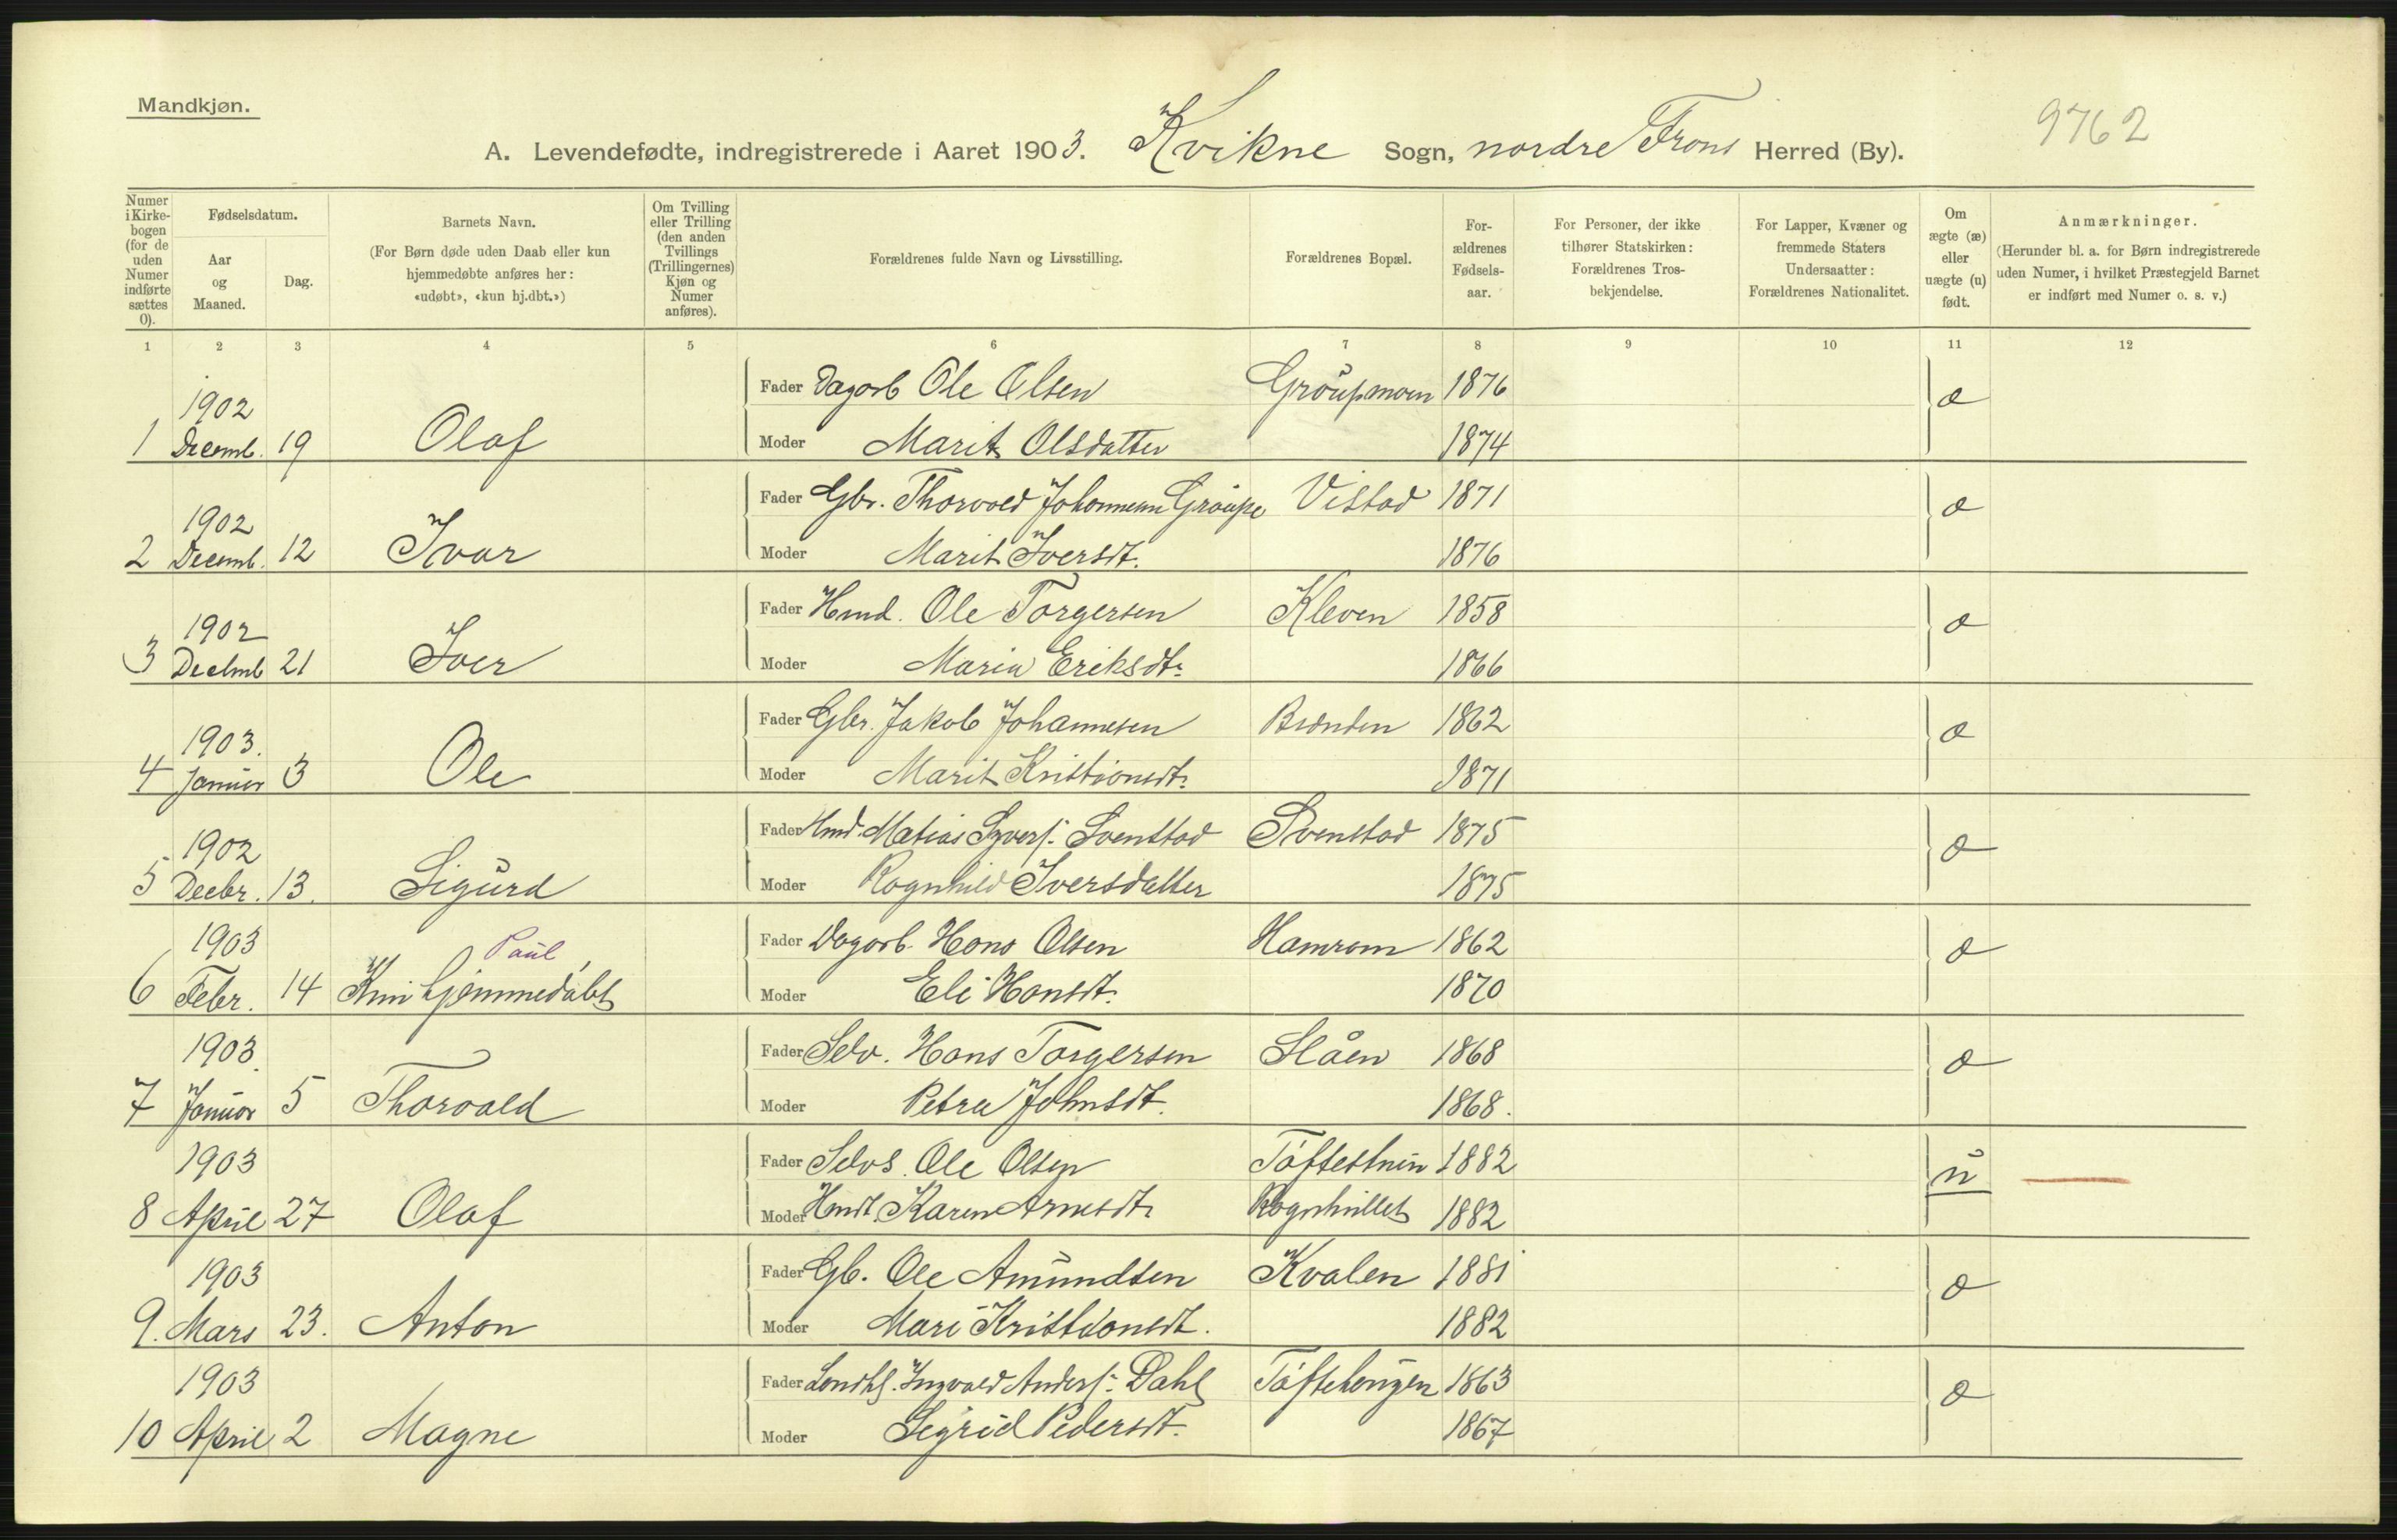 Mandkjøn.
9762
A. Levendefødte, indregistrerede i Aaret 1903. Kvikne Sogn, nordre Frons Herred (By).
Numer i Kirkebogen (for de uden Numer indførte sættes 0).
Fødselsdatum.
Aar og Maaned.
Dag.
Barnets Navn.
(For Børn døde uden Daab eller kun hjemmedøbte anføres her: «udøbt», «kun hj.dbt.»)
Om Tvilling eller Trilling (den anden Tvillings (Trillingernes) Kjøn og Numer anføres).
Forældrenes fulde Navn og Livsstilling.
Forældrenes Bopæl.
Forældrenes Fødselsaar.
For Personer, der ikke tilhører Statskirken: Forældrenes Trosbekjendelse.
For Lapper, Kvæner og fremmede Staters Undersaatter: Forældrenes Nationalitet.
Om ægte (æ) eller uægte (u) født.
Anmærkninger.
(Herunder bl. a. for Børn indregistrerede uden Numer, i hvilket Præstegjeld Barnet er indført med Numer o. s. v.)
1 2 3 4 5 6 7 8 9 10 11 12
1902 Fader Dagarb Ole Olsen Graupmoen 1876 æ
1 Decemb. 19 Olaf Moder Marit Olsdatter 1874
1902 Fader Gbr. Thorvald Johannesen Graupe Vistad 1871 æ
2 Decemb. 12 Ivar Moder Marit Iversdt. 1876
1902 Fader Hmd. Ole Torgersen Kleven 1858 æ
3 Decemb 21 Iver Moder Maria Eriksdt. 1866
1903. Fader Gbr. Jakob Johannesen Brænden 1862 æ
4 Januar 3 Ole Moder Marit Kristiansdt. 1871
1902 Fader Hmd. Matias Syvers. Svenstad Svenstad 1875 æ
5 Decbr. 13. Sigurd Moder Ragnhild Iversdatter 1875
1903 Paul Fader Dagarb. Hans Olsen Hamrom 1862 æ
6 Febr. 14 Kun hjemmedøbt Moder Eli Hansdt. 1870
1903. Fader Selv. Hans Torgersen Slåen 1868 æ
7 Januar 5 Thorvald Moder Petra Johnsdt. 1868.
1903 Fader Selvs. Ole Olsen 1882 u
8 April 27 Olaf Moder Karen Arnesdt. 1882
1903 Fader Gb. Ole Amundsen Kvalen 1881 æ
9. Mars 23. Anton Moder Mari Kristiansdt. 1882
1903 Fader Landh. Ingvald Anders. Dahl Toftehougen 1863 æ
10 April 2 Magne Moder Sigrid Pedersdt. 1867